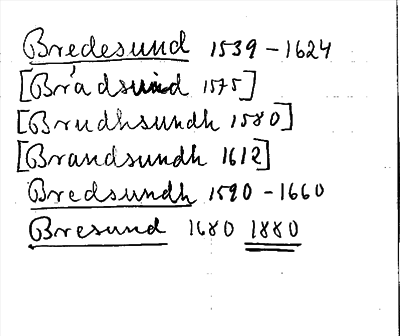 Bredesund 1539-1624
[Brádsund 1575]
[Brudhsundh 1580]
[Brandsundh 1612]
Bredsundh 1590-1660
Bresund 1680 1880